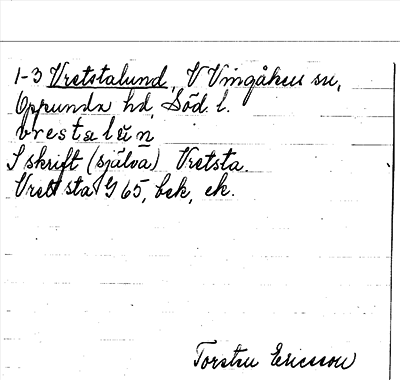 1-3 Vretstalund, V Vingåker sn,
Oppunda hd, Söd. l.
vrestalùn
I skrift (själva) Vretsta.
Vrettsta G 65, bek, ek.
Torsten Ericsson